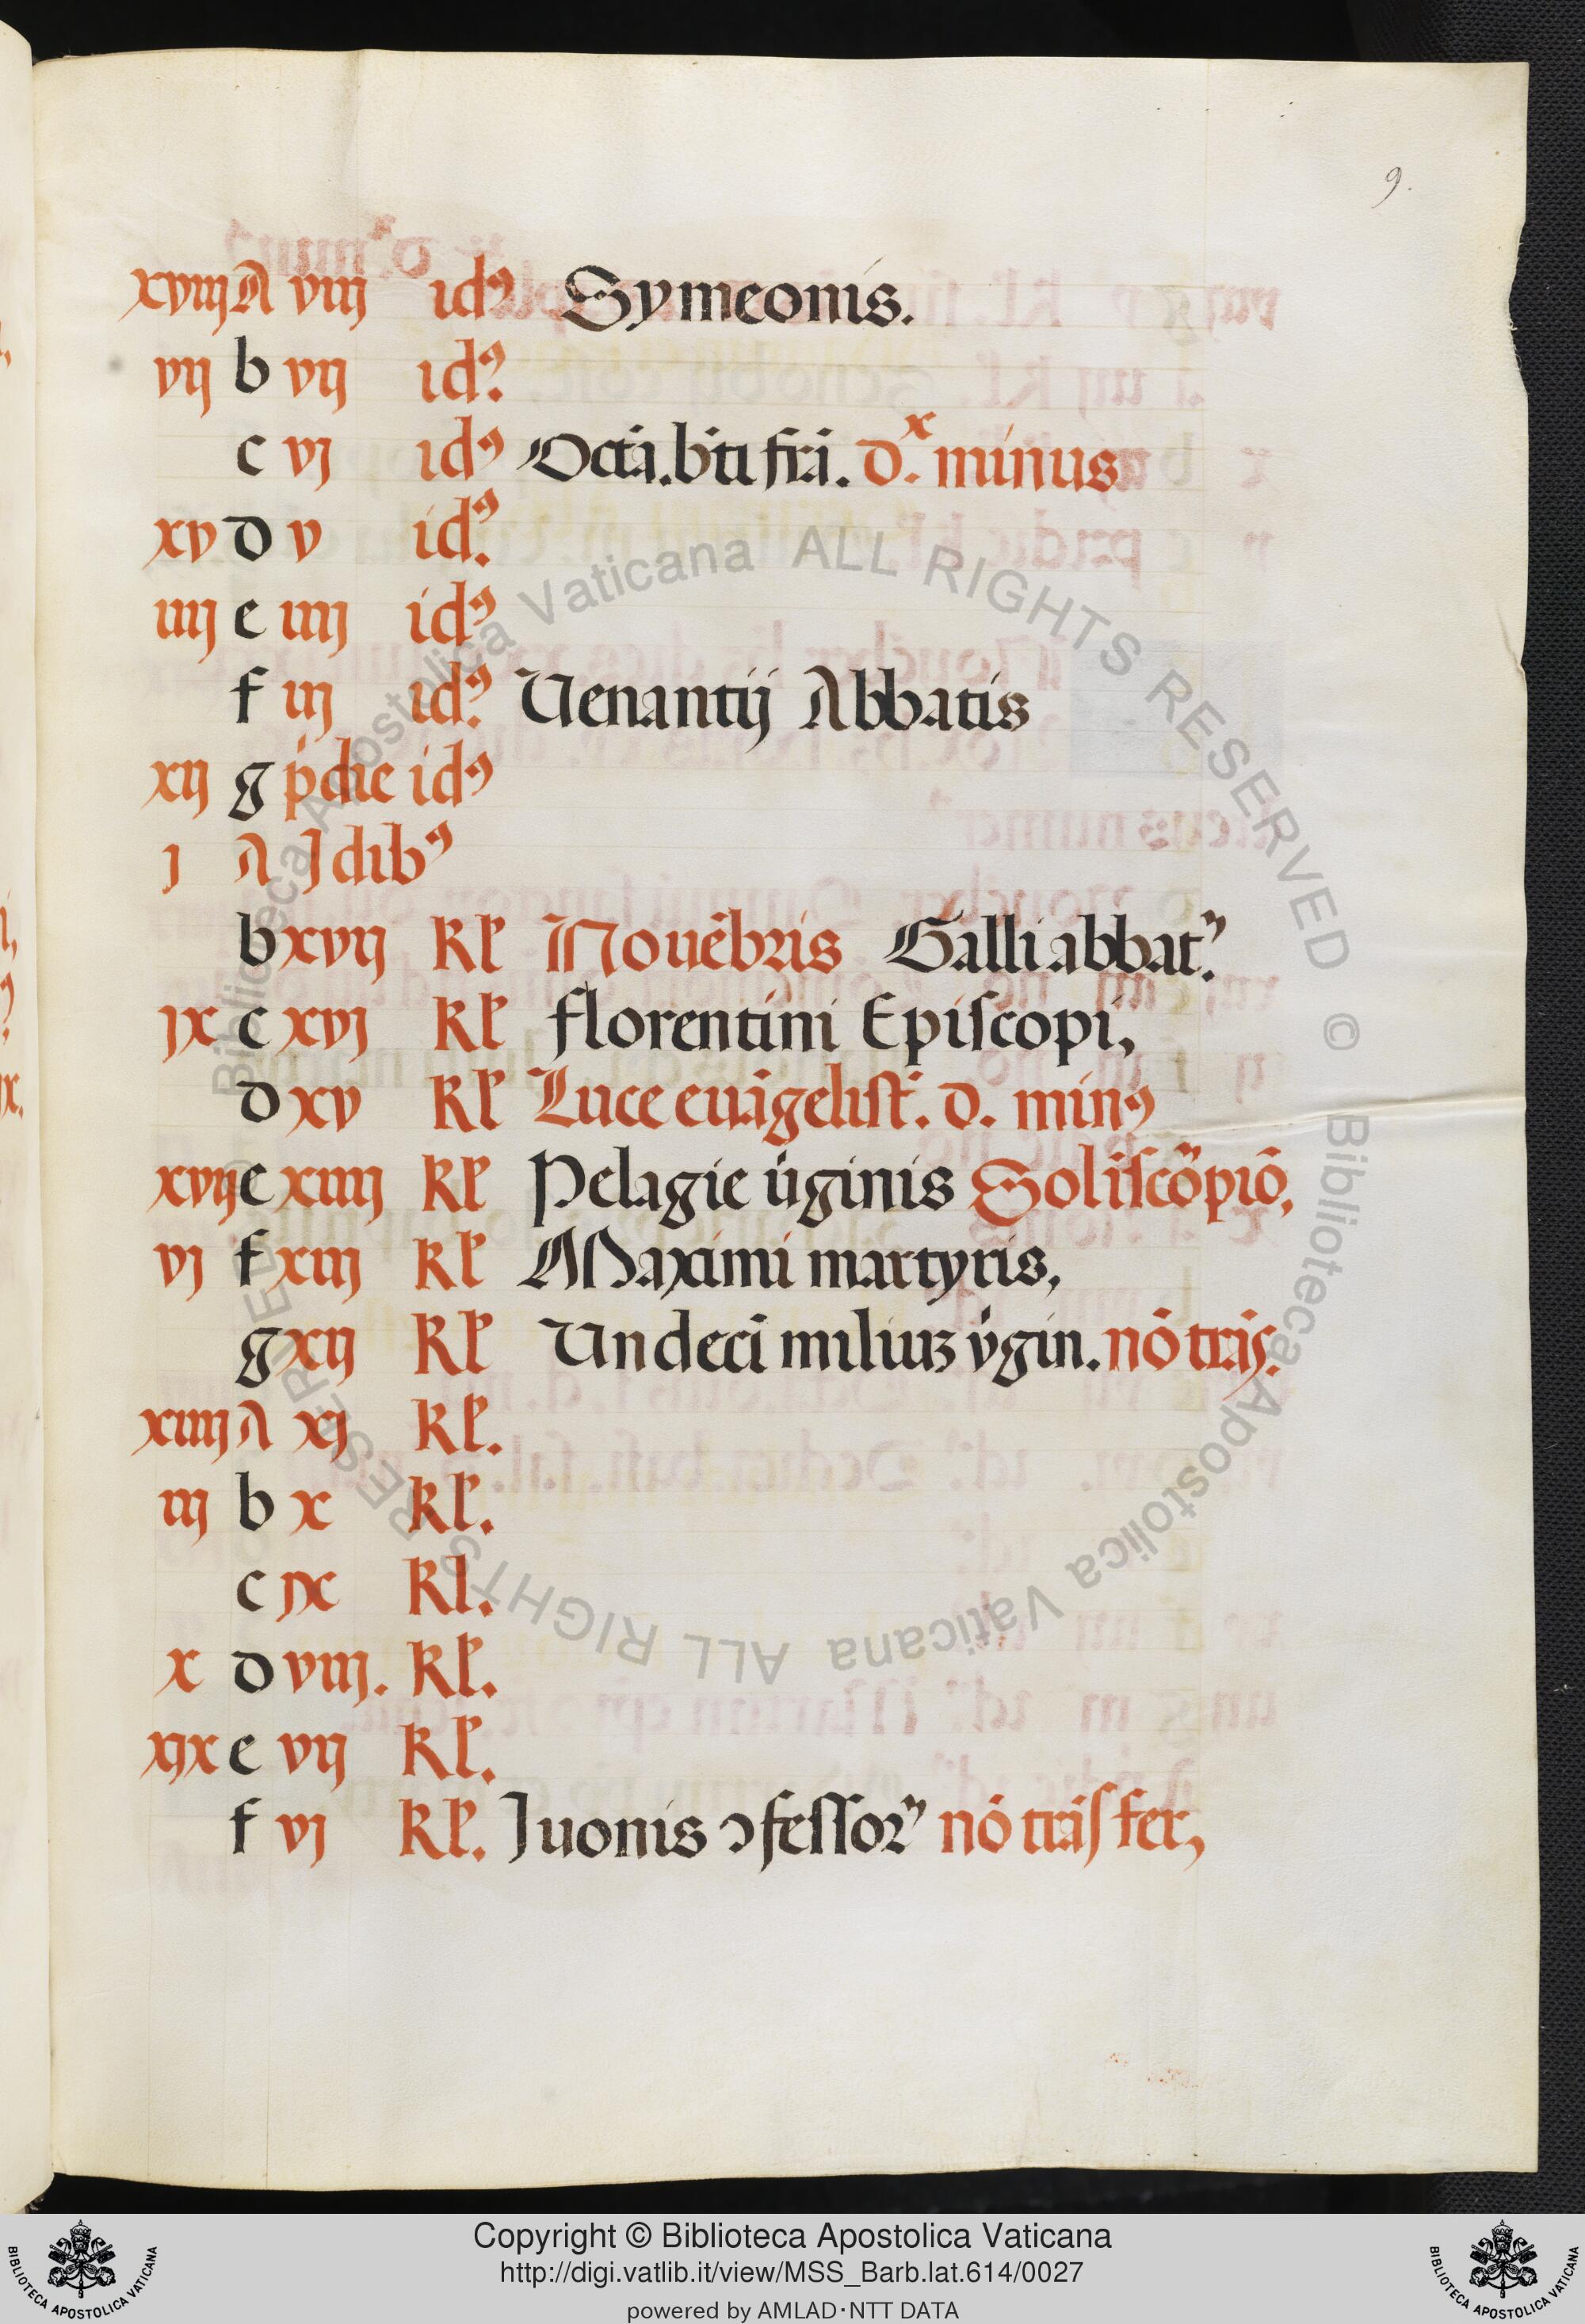 9.
xviij A viij idꝰ Symeonis.
vij b vij idꝰ.
c vj idꝰ Octā. bt̄i frā. d.ˣ minus
xv d v idꝰ.
iiij e iiij idꝰ
f iij idꝰ. Uenantij Abbatis
xij g p̄die idꝰ
j A Jdibꝰ
b xvij kl̄ Nouēbris Galli abbat᷒.
jx c xvj kl̄ florentini Epiſcopi,
d xv kl̄ Luce euāgeliſt̄. d. minꝰ
xvij e xiiij kl̄ Pelagie v̄ginis Sol ī ſcorpiō,
vj f xiij kl̄ Maximi martyris,
g xij kl̄ Undecī miliuꝫ v̄gin. nō trāſ.
xiiij A xj kl̄.
iij b x kl̄.
c jx kl.
x d viij. kl̄.
xjx e vij kl̄.
f vj kl̄. Juonis ↄfeſſor᷒ nō trāſfer,
Biblioteca Apostolica Vaticana ALL RIGHTS RESERVED ©
Biblioteca Apostolica Vaticana ALL RIGHTS RESERVED ©
Copyright © Biblioteca Apostolica Vaticana
http://digi.vatlib.it/view/MSS_Barb.lat.614/0027
powered by AMLAD·NTT DATA
BIBLIOTECA APOSTOLICA VATICANA
BIBLIOTECA APOSTOLICA VATICANA